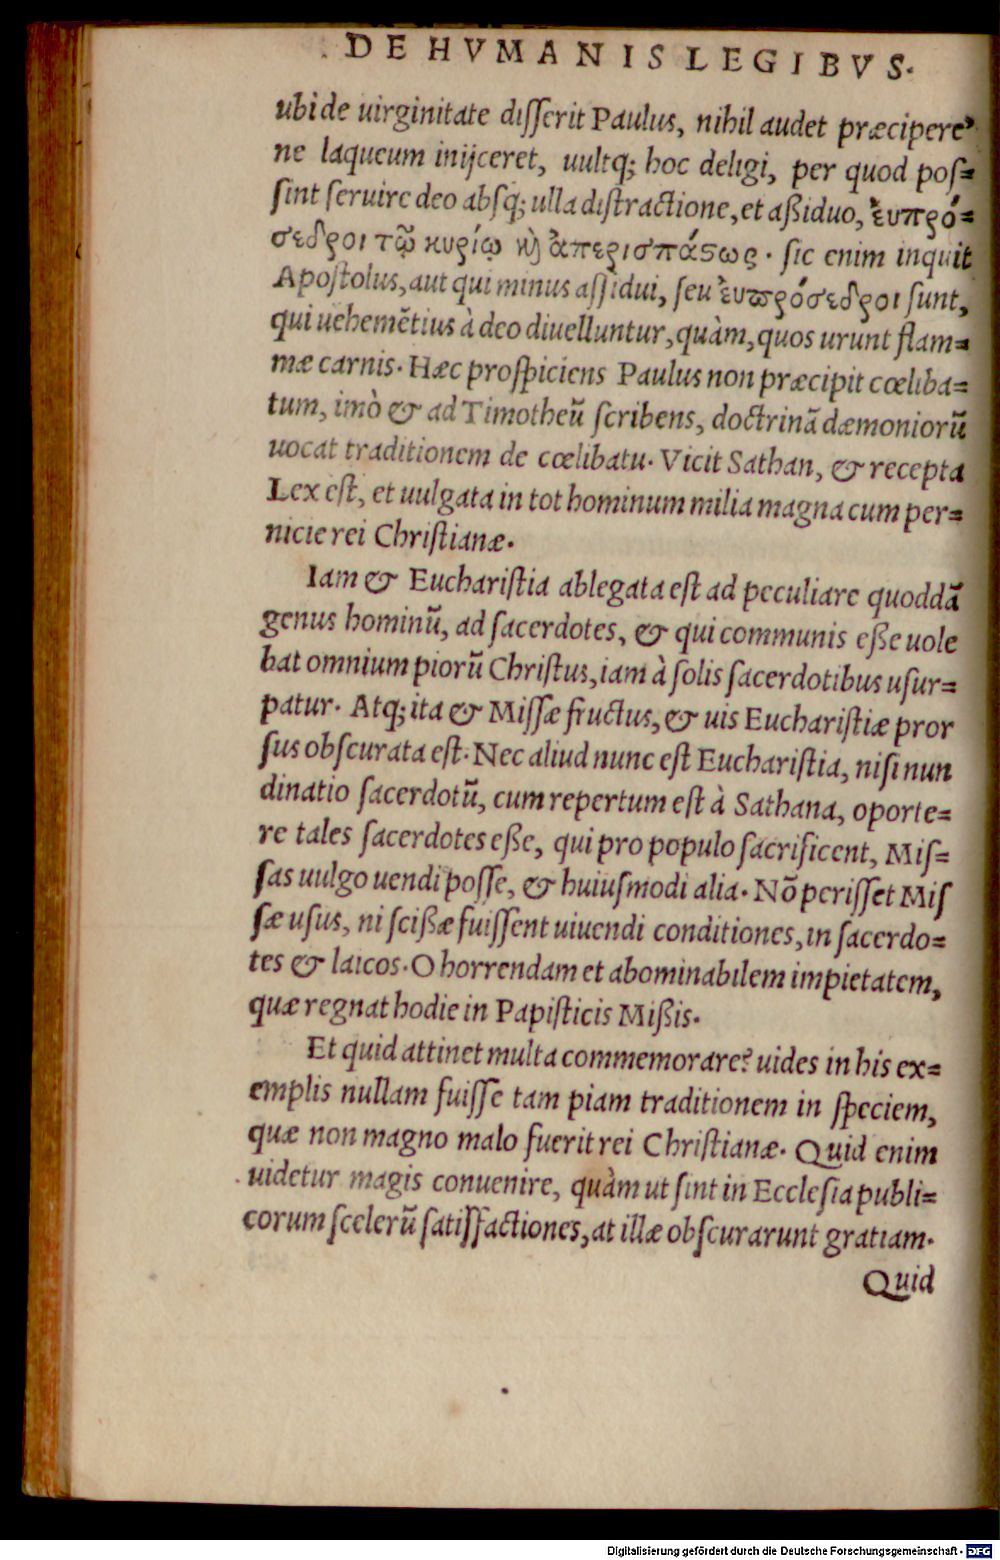 DE HVMANIS LEGIBVS.
ubi de uirginitate disserit Paulus, nihil audet præcipere
ne laqueum inijceret, uultq; hoc deligi, per quod pos=
sint seruire deo absq; ulla distractione, et aßiduo, ἐυπρό=
σεδροι τῷ κυρίῳ κ̀ ἀπερισπάϛως. sic enim inquit
Apostolus, aut qui minus assidui, seu ἐυπρόσεδροι sunt,
qui uehemẽtius à deo diuelluntur, quàm, quos urunt flam=
mæ carnis. Hæc prospiciens Paulus non præcipit cœliba=
tum, imò & ad Timotheũ scribens, doctrinã dæmoniorũ
uocat traditionem de cœlibatu. Vicit Sathan, & recepta
Lex est, et uulgata in tot hominum milia magna cum per=
nicie rei Christianæ.
Iam & Eucharistia ablegata est ad peculiare quoddã
genus hominũ, ad sacerdotes, & qui communis eße uole
bat omnium piorũ Christus, iam à solis sacerdotibus usur=
patur. Atq; ita & Missæ fructus, & uis Eucharistiæ pror
sus obscurata est. Nec aliud nunc est Eucharistia, nisi nun
dinatio sacerdotũ, cum repertum est à Sathana, oporte=
re tales sacerdotes eße, qui pro populo sacrificent, Mis=
sas uulgo uendi posse, & huiusmodi alia. Nõ perisset Mis
sæ usus, ni scißæ fuissent uiuendi conditiones, in sacerdo=
tes & laicos. O horrendam et abominabilem impietatem,
quæ regnat hodie in Papisticis Mißis.
Et quid attinet multa commemorare? uides in his ex=
emplis nullam fuisse tam piam traditionem in speciem,
quæ non magno malo fuerit rei Christianæ. Quid enim
uidetur magis conuenire, quàm ut sint in Ecclesia publi=
corum scelerũ satisfactiones, at illæ obscurarunt gratiam.
Quid
Digitalisierung gefördert durch die Deutsche Forschungsgemeinschaft - DFG